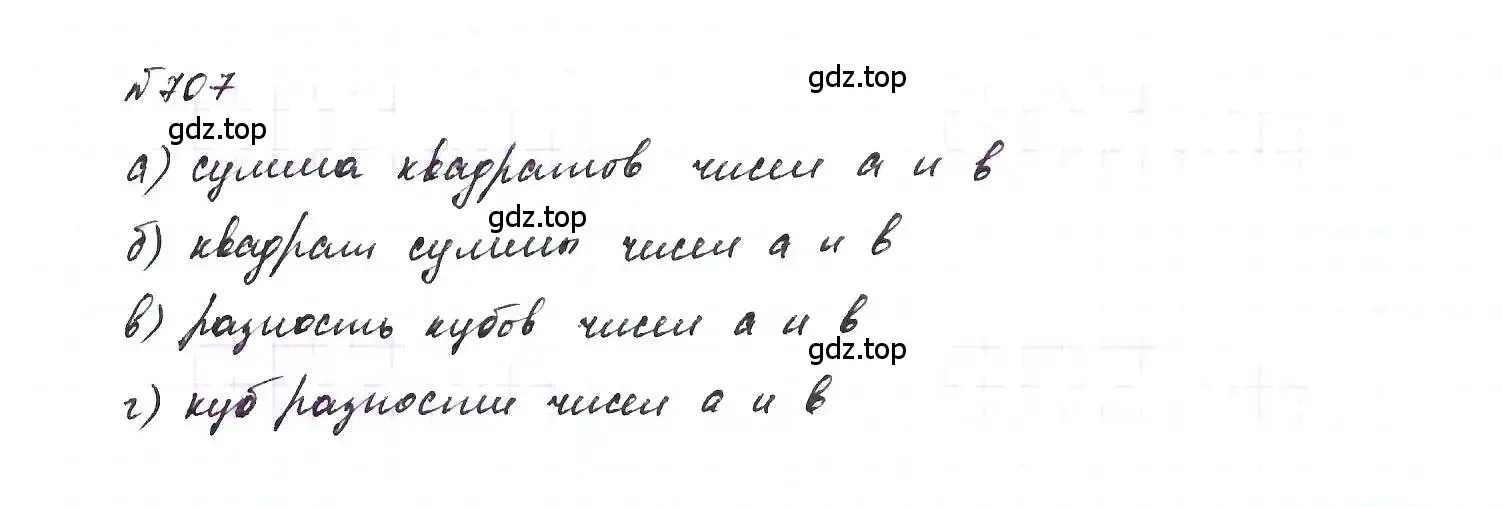 № 707
gdz.top
gdz.top
а) сумма квадратов чисел a и b
gdz.top
б) квадрат суммы чисел a и b
в) разность кубов чисел a и b
gdz.top
г) куб разности чисел a и b